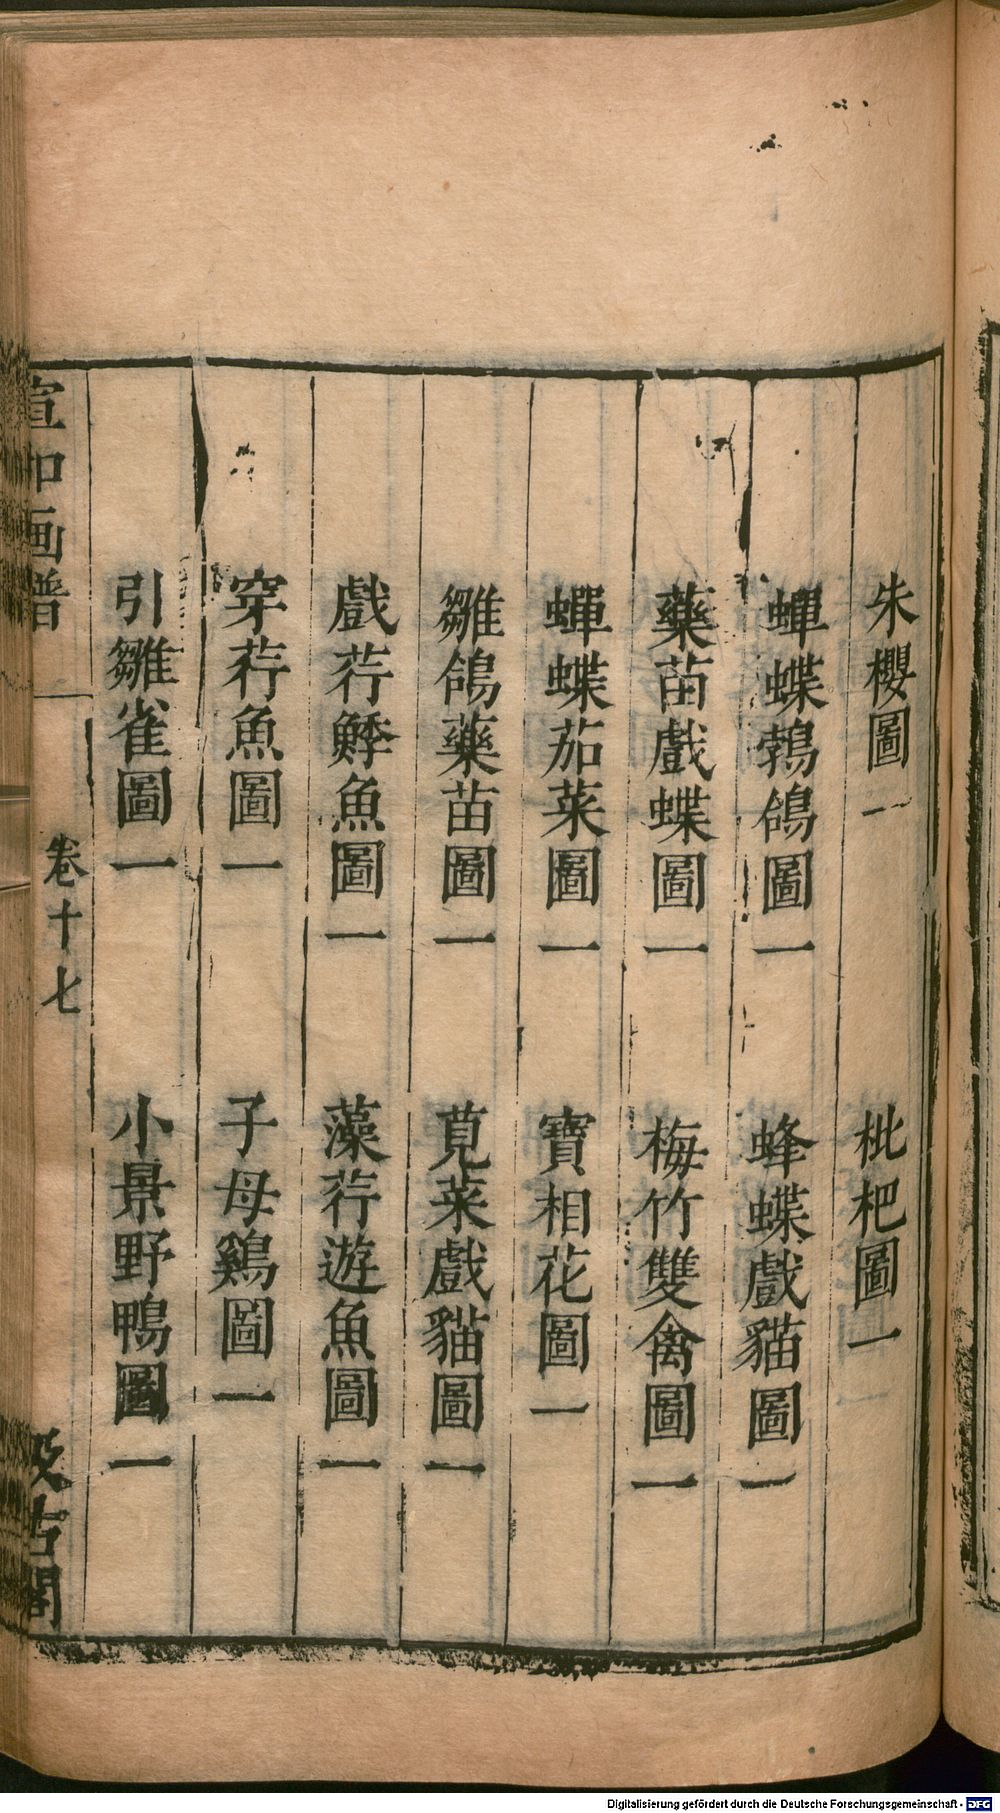 朱櫻圖一 枇杷圖一
蟬蝶鵓鴿圖一 蜂蝶戲貓圖一
藥苗戲蝶圖一 梅竹雙禽圖一
蟬蝶茄菜圖一 寶相花圖一
雛鴿藥苗圖一 莧菜戲貓圖一
戲荇鯚魚圖一 藻荇遊魚圖一
穿荇魚圖一 子母鷄圖一
引雛雀圖一 小景野鴨圖一
宣和画譜 卷十七 汲古閣
Digitalisierung gefördert durch die Deutsche Forschungsgemeinschaft - DFG